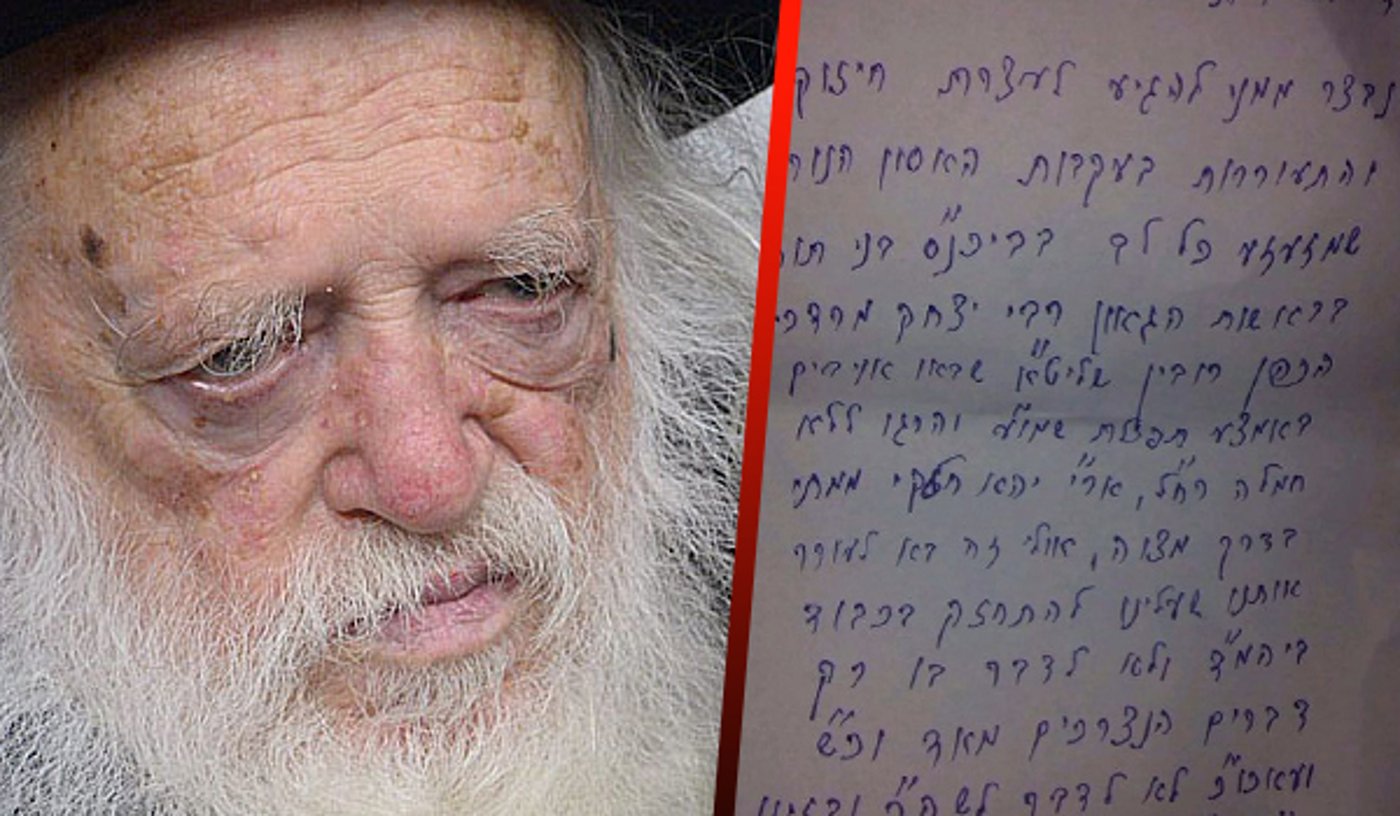 נבצר ממני להגיע לעצרת חיזוק
והתעוררות בעקבות האסון
שמזעזע כל לב בביכנ"ס בני
בראשות הגאון רבי יצחק מרדכי
הכהן רובין שליט"א שבאו אויבים
באמצע תפלת שמו"ע והרגו ללא
חמלה רח"ל, אר"י יהא חלקי ממתי
בדרך מצוה, אולי זה בא לעורר
אותנו שעלינו להתחזק בכבוד
ביהמ"ד ולא לדבר בו רק
דברים הנצרכים מאוד וכ"ש
ועאכו"כ לא לדבר לשה"ר